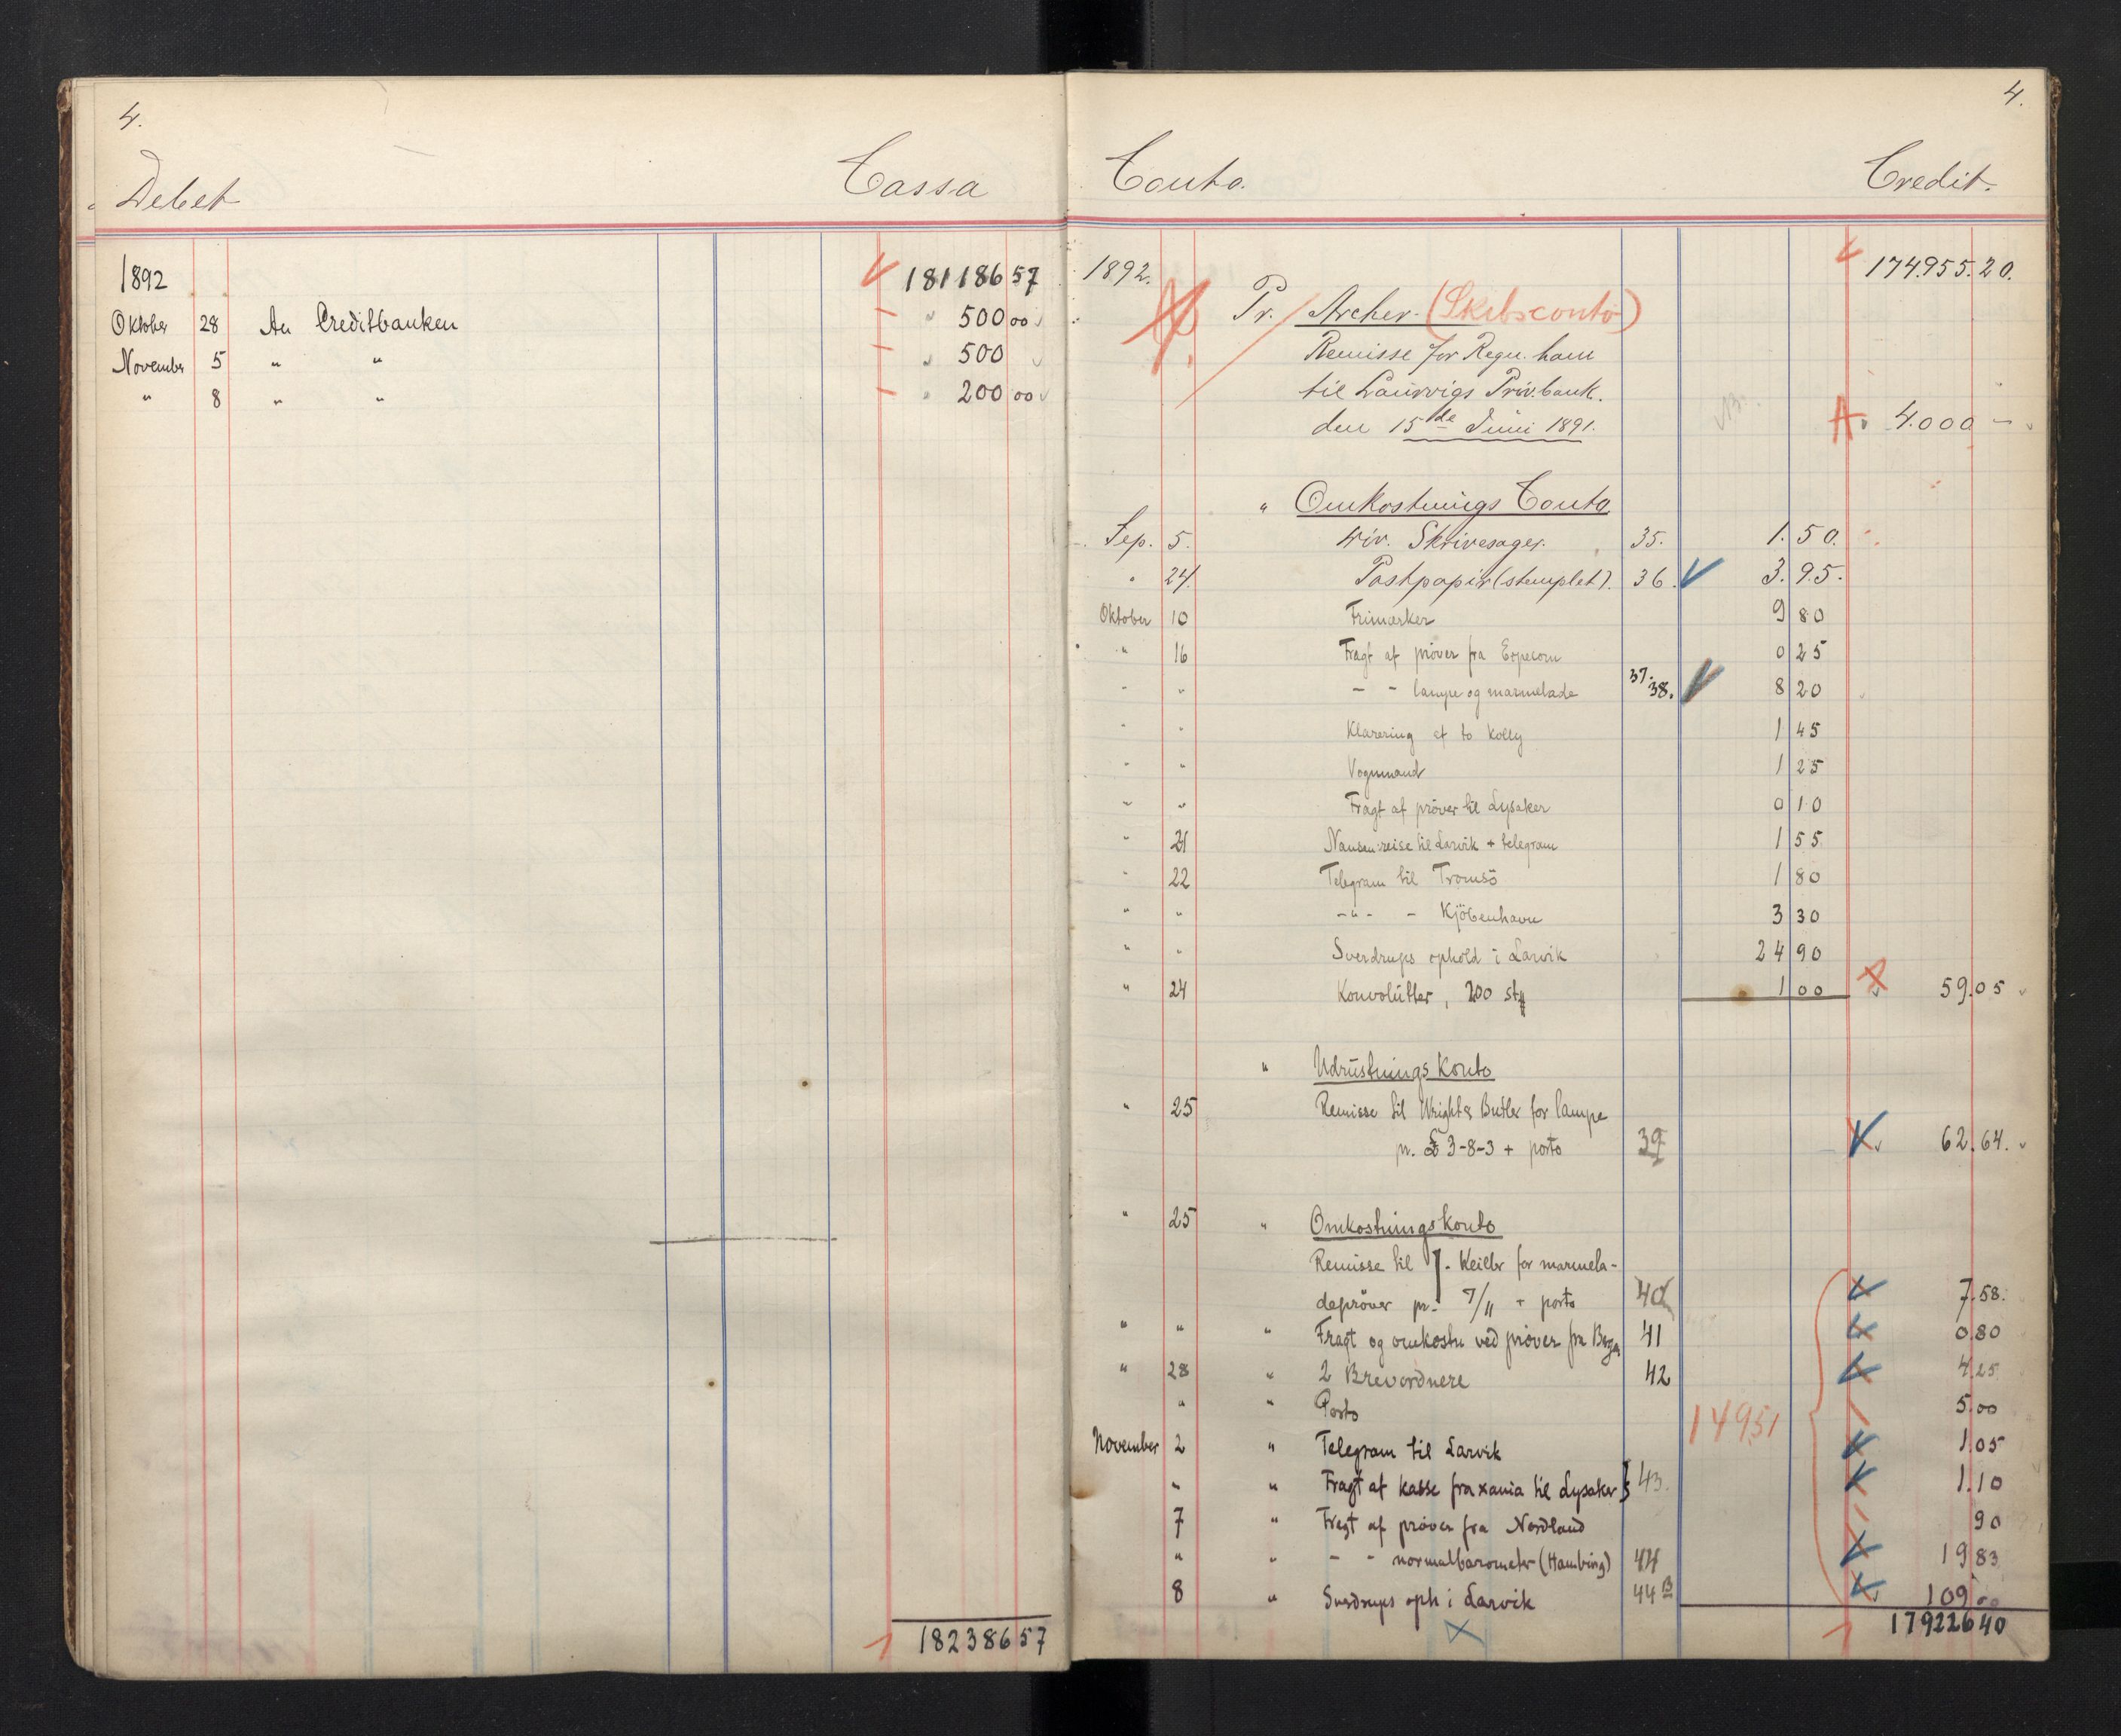 4.
Debet Cassa
1892 181186 57
Oktober 28 An Creditbanken " 500 00
November 5 " " " 500
" 8 " " " 200 00
182386 57
4.
Conto. Credit.
1892. 174.955.20.
Pr. Archer (Skibsconto)
Remisse for Regn. ham
til Laurvigs Priv. bank.
den 15de Juni 1891. 4.000 -
" Omkostnings Conto
Sep. 5. Div. Skrivesager. 35. 1.50.
" 24. Postpapir (stemplet). 36. 3.95.
Oktober 10 Frimærker 9 80
" 16 Fragt af prøver fra 0 25
" " - - lampe og marmelade 37. 38. 8 20
" " Klarering af to kolly 1 45
" " Vognmand 1 25
" " Fragt af prøver til Lysaker 0 10
" 21 Nansen: reise til Larvik + telegram 1 55
" 22 Telegram til Tromsö 1 80
" " -"- - Kjöbenhavn 3 30
" " Sverdrups ophold i Larvik 24 90
" 24 Konvolutter, 200 st 1 00 59.05
" Udrustnings Konto
" 25 Remisse til Wright & Butler for lampe
pr. £ 3-8-3 + porto 39 62.64.
" 25 " Omkostningskonto
Remisse til J. Keiller for marmela-
deprøver pr. 7/11 + porto 40 7.58.
" " " Fragt og omkostn ved prøver fra 41 0.80
" 28 " 2 Brevordnere 42 4.25
" " Porto 5.00
14951
November 2 " Telegram til Larvik 1.05
" " Fragt af kasse fra xania til Lysaker } 43. 1.10
7 " Fragt af prøver fra Nordland 90
" " - - normalbarometer (Hamburg) 44 19 83
8 " Sverdrups oph i Larvik 44 B 109 00
179226 40